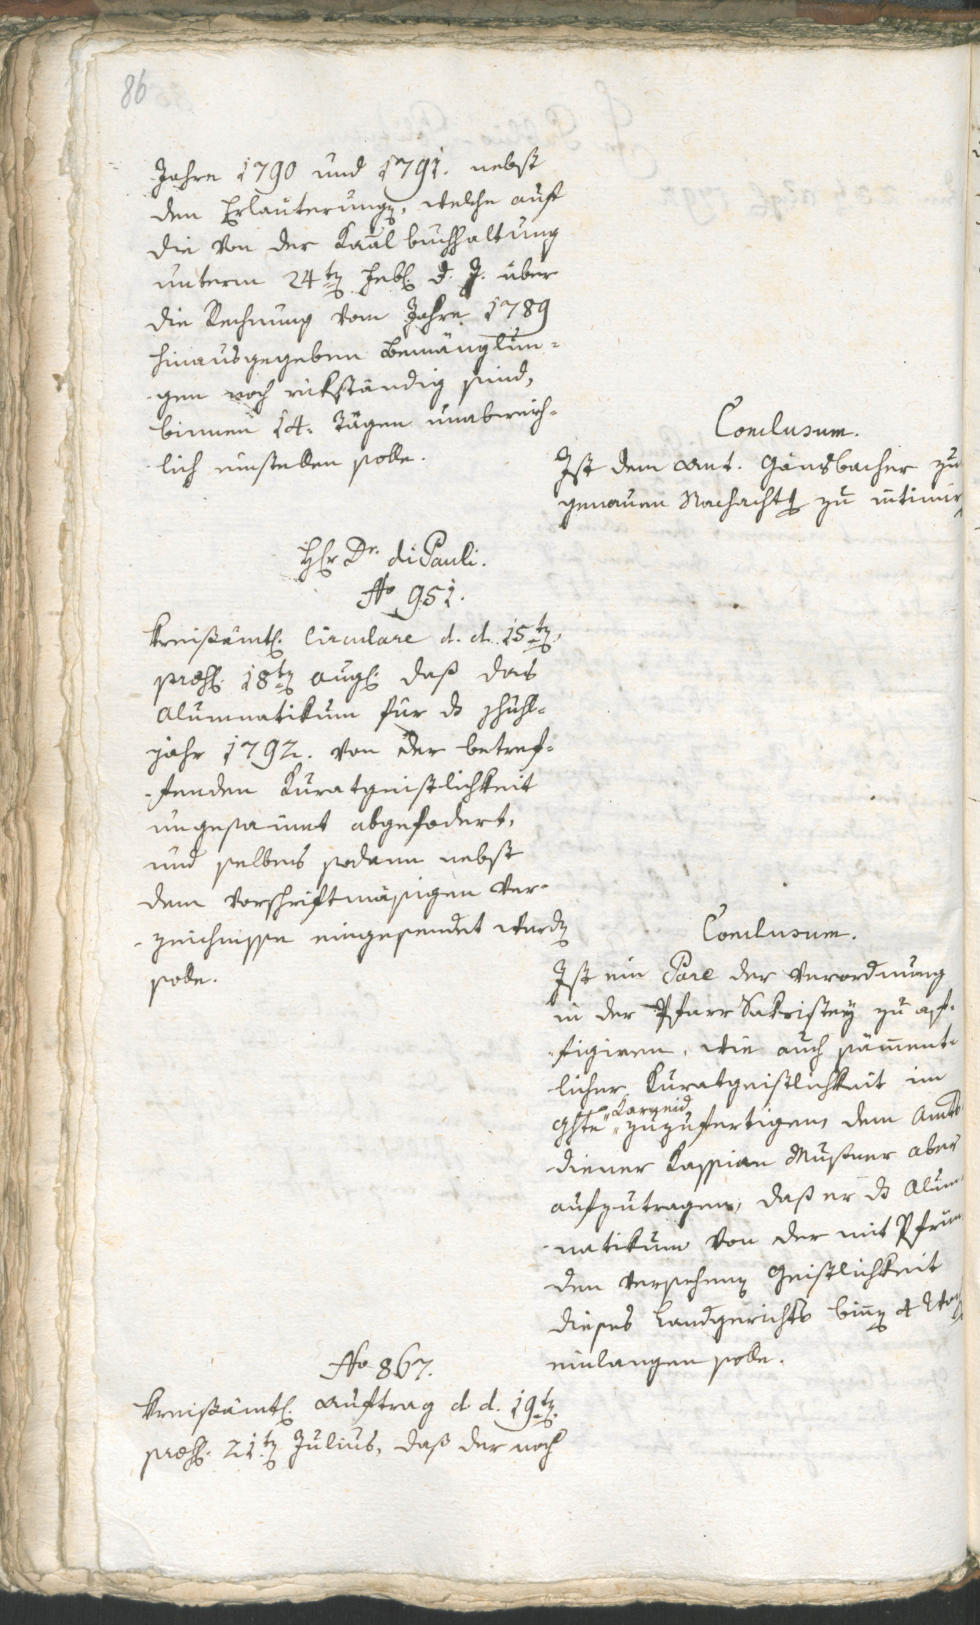 86
Jahre 1790 und 1791. nebst
den Erläuterungen, welche auf
die von der Kaal buchhaltung
unterm 24ten Febl. d. J. über
die Rechnung vom Jahre 1789
hinausgegeben Bemänglun-
gen noch rükständig sind,
binnen 14. Tägen unabweich-
lich einstellen solle.
Conclusum.
Ist dem Ant. Gänsbacher zu
genauen Nachachtg zu intimir
Hr Dr. di Pauli.
No 951.
Kreißämtl. Circulare d. d. 15ten
præs. 18ten Augl. daß das
Alumnatikum für ds Schuhl-
jahr 1792. von der betref-
fenden Kuratgeistlichkeit
ungesäumt abgefodert,
und selbens sodann nebst
dem vorschriftmäsigen Ver-
zeichnisse eingesendet werden
solle.
Conclusum.
Ist ein Pare der Verordnung
in der Pfarr Sakristey zu af-
figiren, wie auch sämment-
licher Kuratgeistlichkeit im
Ghte "Karneid" zuzufertigen, dem Amts
diener Kassian Mußner aber
aufzutragen, daß er ds Alum
natikum von der mit Pfrün
den versehenen Geistlichkeit
dieses Landgerichts binnen 4 Woch
einlangen solle.
No 867.
Kreißämtl. Auftrag d. d. 19ten
præs. 21ten Julius, daß der noch